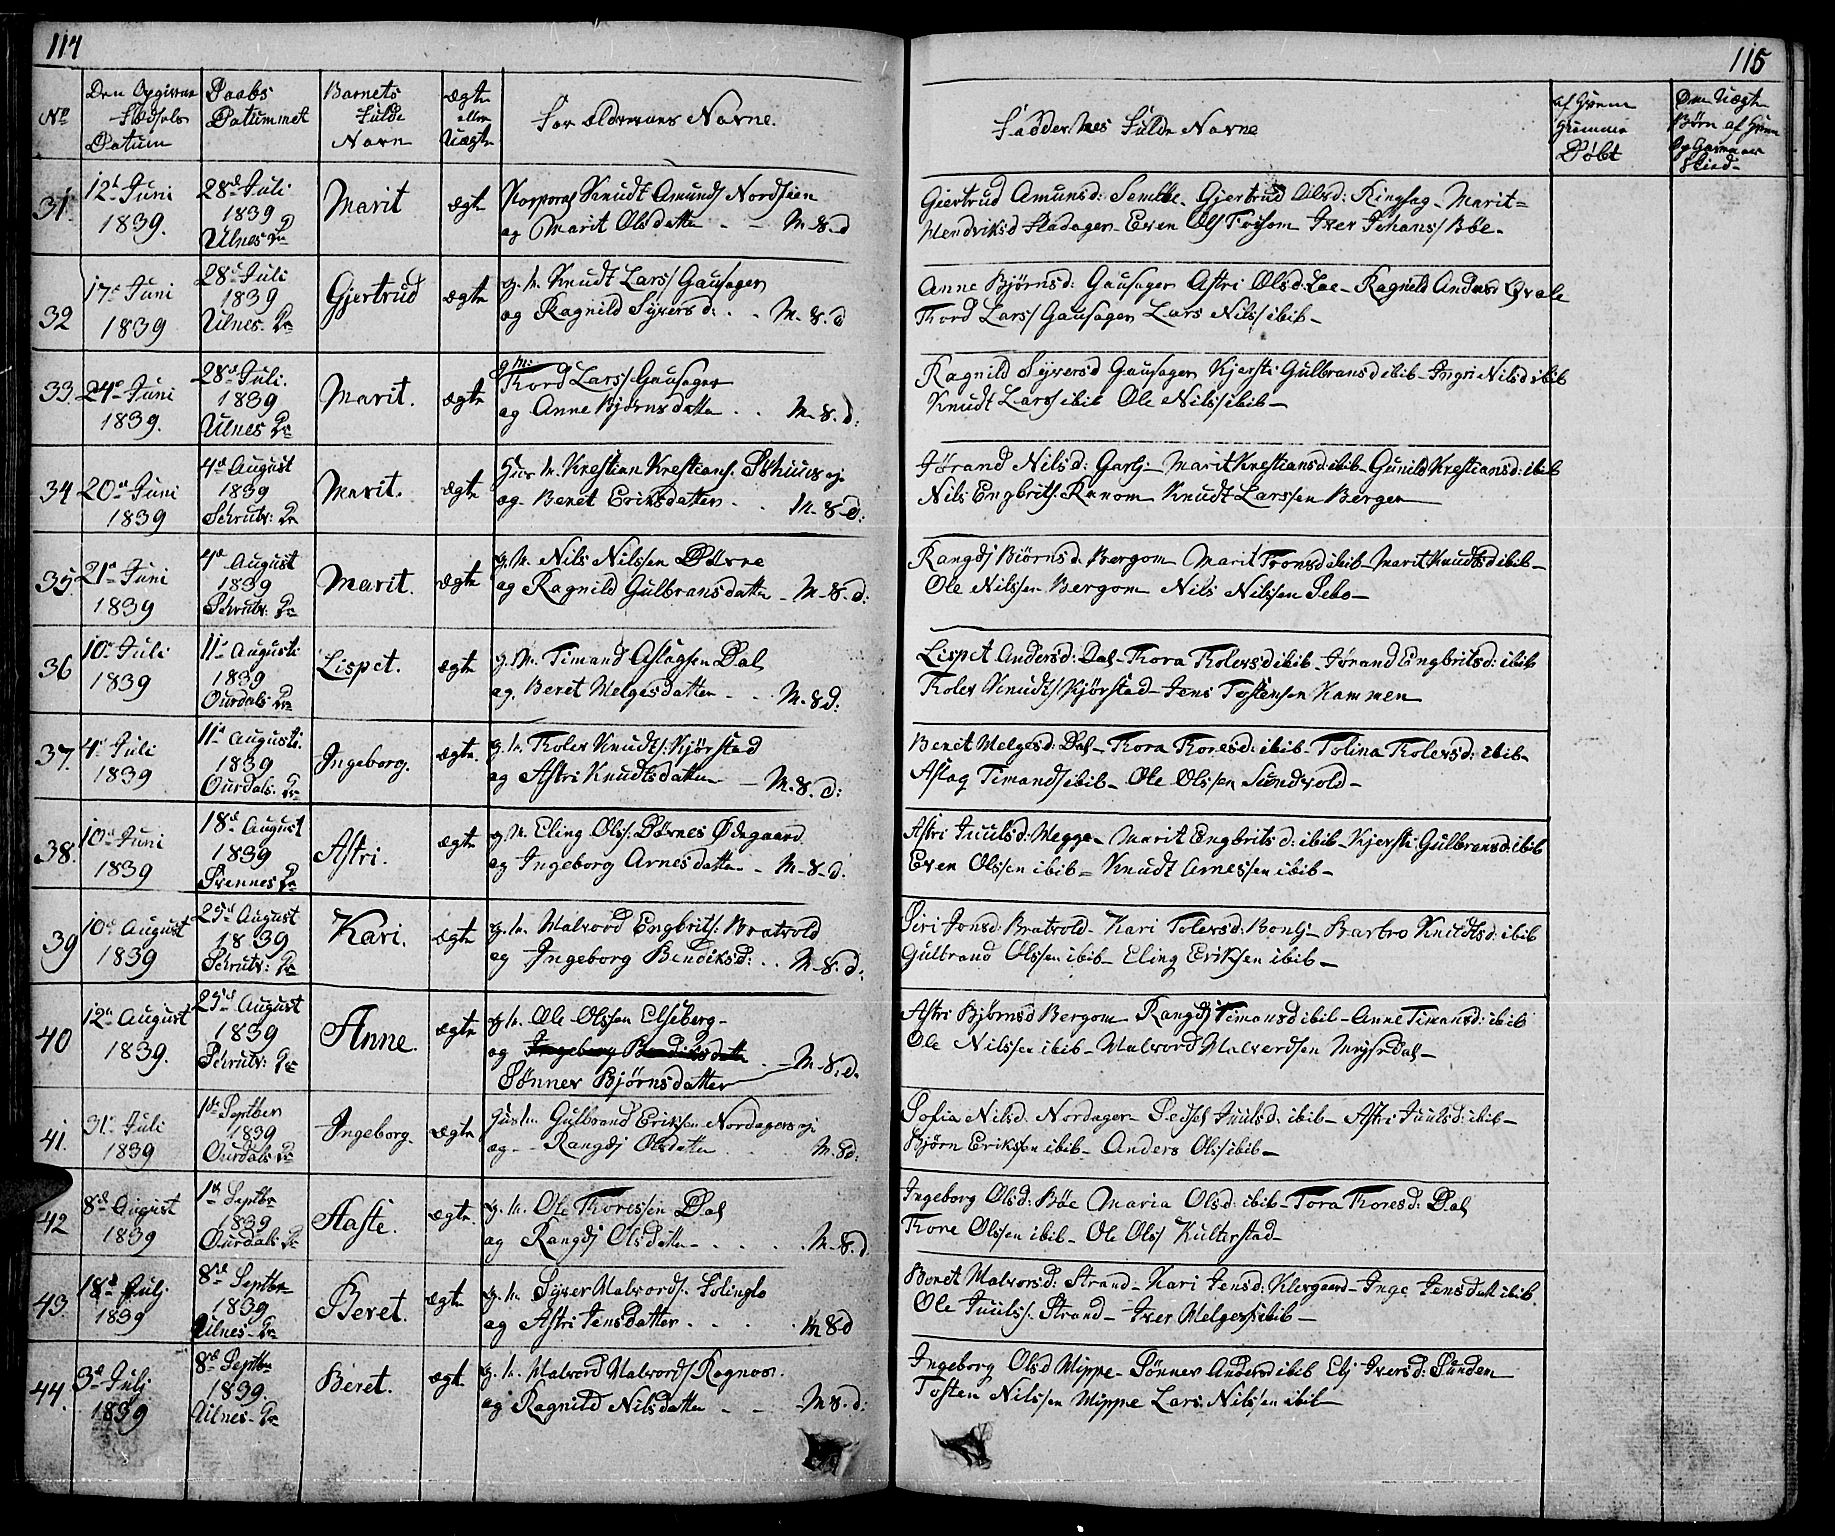 114
115
No Den Opgivne Fødsels Datum Daabs Datummet Barnets Fulde Navn Ægte eller Uægte Forældrenes Navne. Faddernes Fulde Navne af Hvem Hiemme Døbt Den Uægte Børn af Hvem
31 12te Juni 1839. 28de Juli 1839 Ulnes K Marit ægte Korporal Knudt Amunds Nordsien
og Marit Olsdatter - - M-8-d
Giertrud Amunsd: Semble. Gjertrud Olsd: Ringsag - Marit=
Hendriksd Fladager - Even Ols Fosom Iver Johans/ Bøe.
32 17de Juni 1839 28de Juli 1839 Ulnes K Gjertrud ægte g. M. Knudt Lars/ Gausager
og Ragnild Syversd: . . M. 8. d
Anne Bjørnsd: Gausager Astri Olsd: Loe - Ragnild Andersd Qvale
Thord Lars/ Gausager Lars Nils/ ibib -
33. 24de Juni 1839. 28de Juli. 1839 Ulnes K Marit. ægte g M: Thord Lars/ Gausager
og Anne Bjørnsdatter . . M-8.d:
Ragnild Syversd Gausager Kjersti Gulbransd ibib - Ingri Nilsd ibib
Knudt Lars/ ibib Ole Nils/ ibib -
34 20de Juni 1839 4de August 1839 Schrutv: K Marit. ægte Huus M. Krestian Krestians/.
og Beret Eriksdatter - . M-8-d:
Jørand Nilsd: Garlj - Marit Krestiansd: ibib - Gunild Krestiansd: ibib
Nils Engbrits/ Ranom Knudt Larssen Bergen
35. 21de Juni 1839 4de August 1839 Schrutv: K Marit. ægte g. M. Nils Nilssen Børne
og Ragnild Gulbransdatter - M-8.d:
Rangdj Biørnsd: Bergom Marit Tronsd ibib - Marit Knudtsd ibib -
Ole Nilssen Bergom Nils Nilssen Sebo -
36 10de Juli 1839 11te Augusti 1839 Ourdals K Lispet. ægte g. M. Timand Aslagsen Dal
og. Beret Helgesdatter - . . M. 8 d:
Lispet Andersd: Dal - Thora Tholersd ibib - Jørand Engbritsd: ibib
Tholer Knudts/ Kjørstad - Jens Tostensen Kammen
37. 4de Juli 1839 11te Augusti. 1839 Ourdals. K Ingeborg. ægte. g. M. Tholer Knudts/: Kjørstad
og Astri Knudtsdatter - M. 8. d:
Beret Helgesd: Dal - Thora Thoresd: ibib - Tolina Tholersd: ibib -
Aslag Timands/ ibib - Ole Olssen Sundvold -
38. 10de Juni 1839 18de August 1839 Svennes K Astri. ægte g. M. Eling Ols/: Børnes Ødegaard.
og Ingeborg Arnesdatter - M-8-d.
Astri Juulsd: Hegge - Marit Engbritsd: ibib - Kjersti Gulbransd: ibib
Even Olssen ibib - Knudt Arnessen ibib -
39 10de August 1839 25de August 1839 Schrutv: K Kari. ægte g. M. Halvord Engbrits/: Bratvold
og Ingeborg Bendiksd: . . M-8-d:
Siri Jonsd: Bratvold - Kari Tolersd: Bonlj - Barbro Knudtsd: ibib
Gulbrand Olssen ibib - Eling Eriksen ibib -
40 12te August 1839. 25de August 1839 Schrutv: K Anne. ægte g. M. Ole Olssen Elseberg -
og Ingeborg Bendiksdatter . - M-8.d.
Sønnev Bjørnsdatter
Astri Bjørnsd Bergom Rangdj Timansd ibib - Anne Timansd: ibib
Ole Nilssen ibib - Halvord Halvordsen Myhrdal -
41. 31te Juli 1839 1de Septber 1839 Ourdals K Ingeborg. ægte Huus M. Gulbrand Eriksen Nordagers
og - Rangdj Olsdatter . . . M. 8d:
Sofia Nilsd. Nordager - Sedsel Juulsd. ibib - Astri Juulsd: ibib -
Bjørn Erikssen ibib - Anders Ols/ ibib -
42 8de August 1839 1de Septbr 1839 Ourdals K Aaste. ægte g. M. Ole Thoressen Dal
og Rangdj Olsdatter - . . . M-8.d:
Ingeborg Olsd: Bøe Maria Olsd: ibib - Tora Thoresd: Dal
Thore Olssen ibib - Ole Ols/ Kulterstad -
43. 18de Julj 1839 8de Septbr 1839 Ulnes - K Beret. ægte g. M. Syver Halvords/.
og Astri Jensdatter . - . . M 8 d
Beret Halvorsd: Strand - Kari Jensd: Klevgaard - Inge Jensdatt ibib.
Ole Juuls/: Strand - Iver Helges/ ibib -
44. 3de Julj 1839 8de Septbr 1839. Ulnes - K Beret. ægte g. M. Halvord Halvords/ Ragnos.
og Ragnild Nilsdatter - - M 8. d:
Ingeborg Olsd Hippe - Sønnev Andersd ibib Elj Iversd: Sunden
Tosten Nilssen Hippe Lars Nilssen ibib -